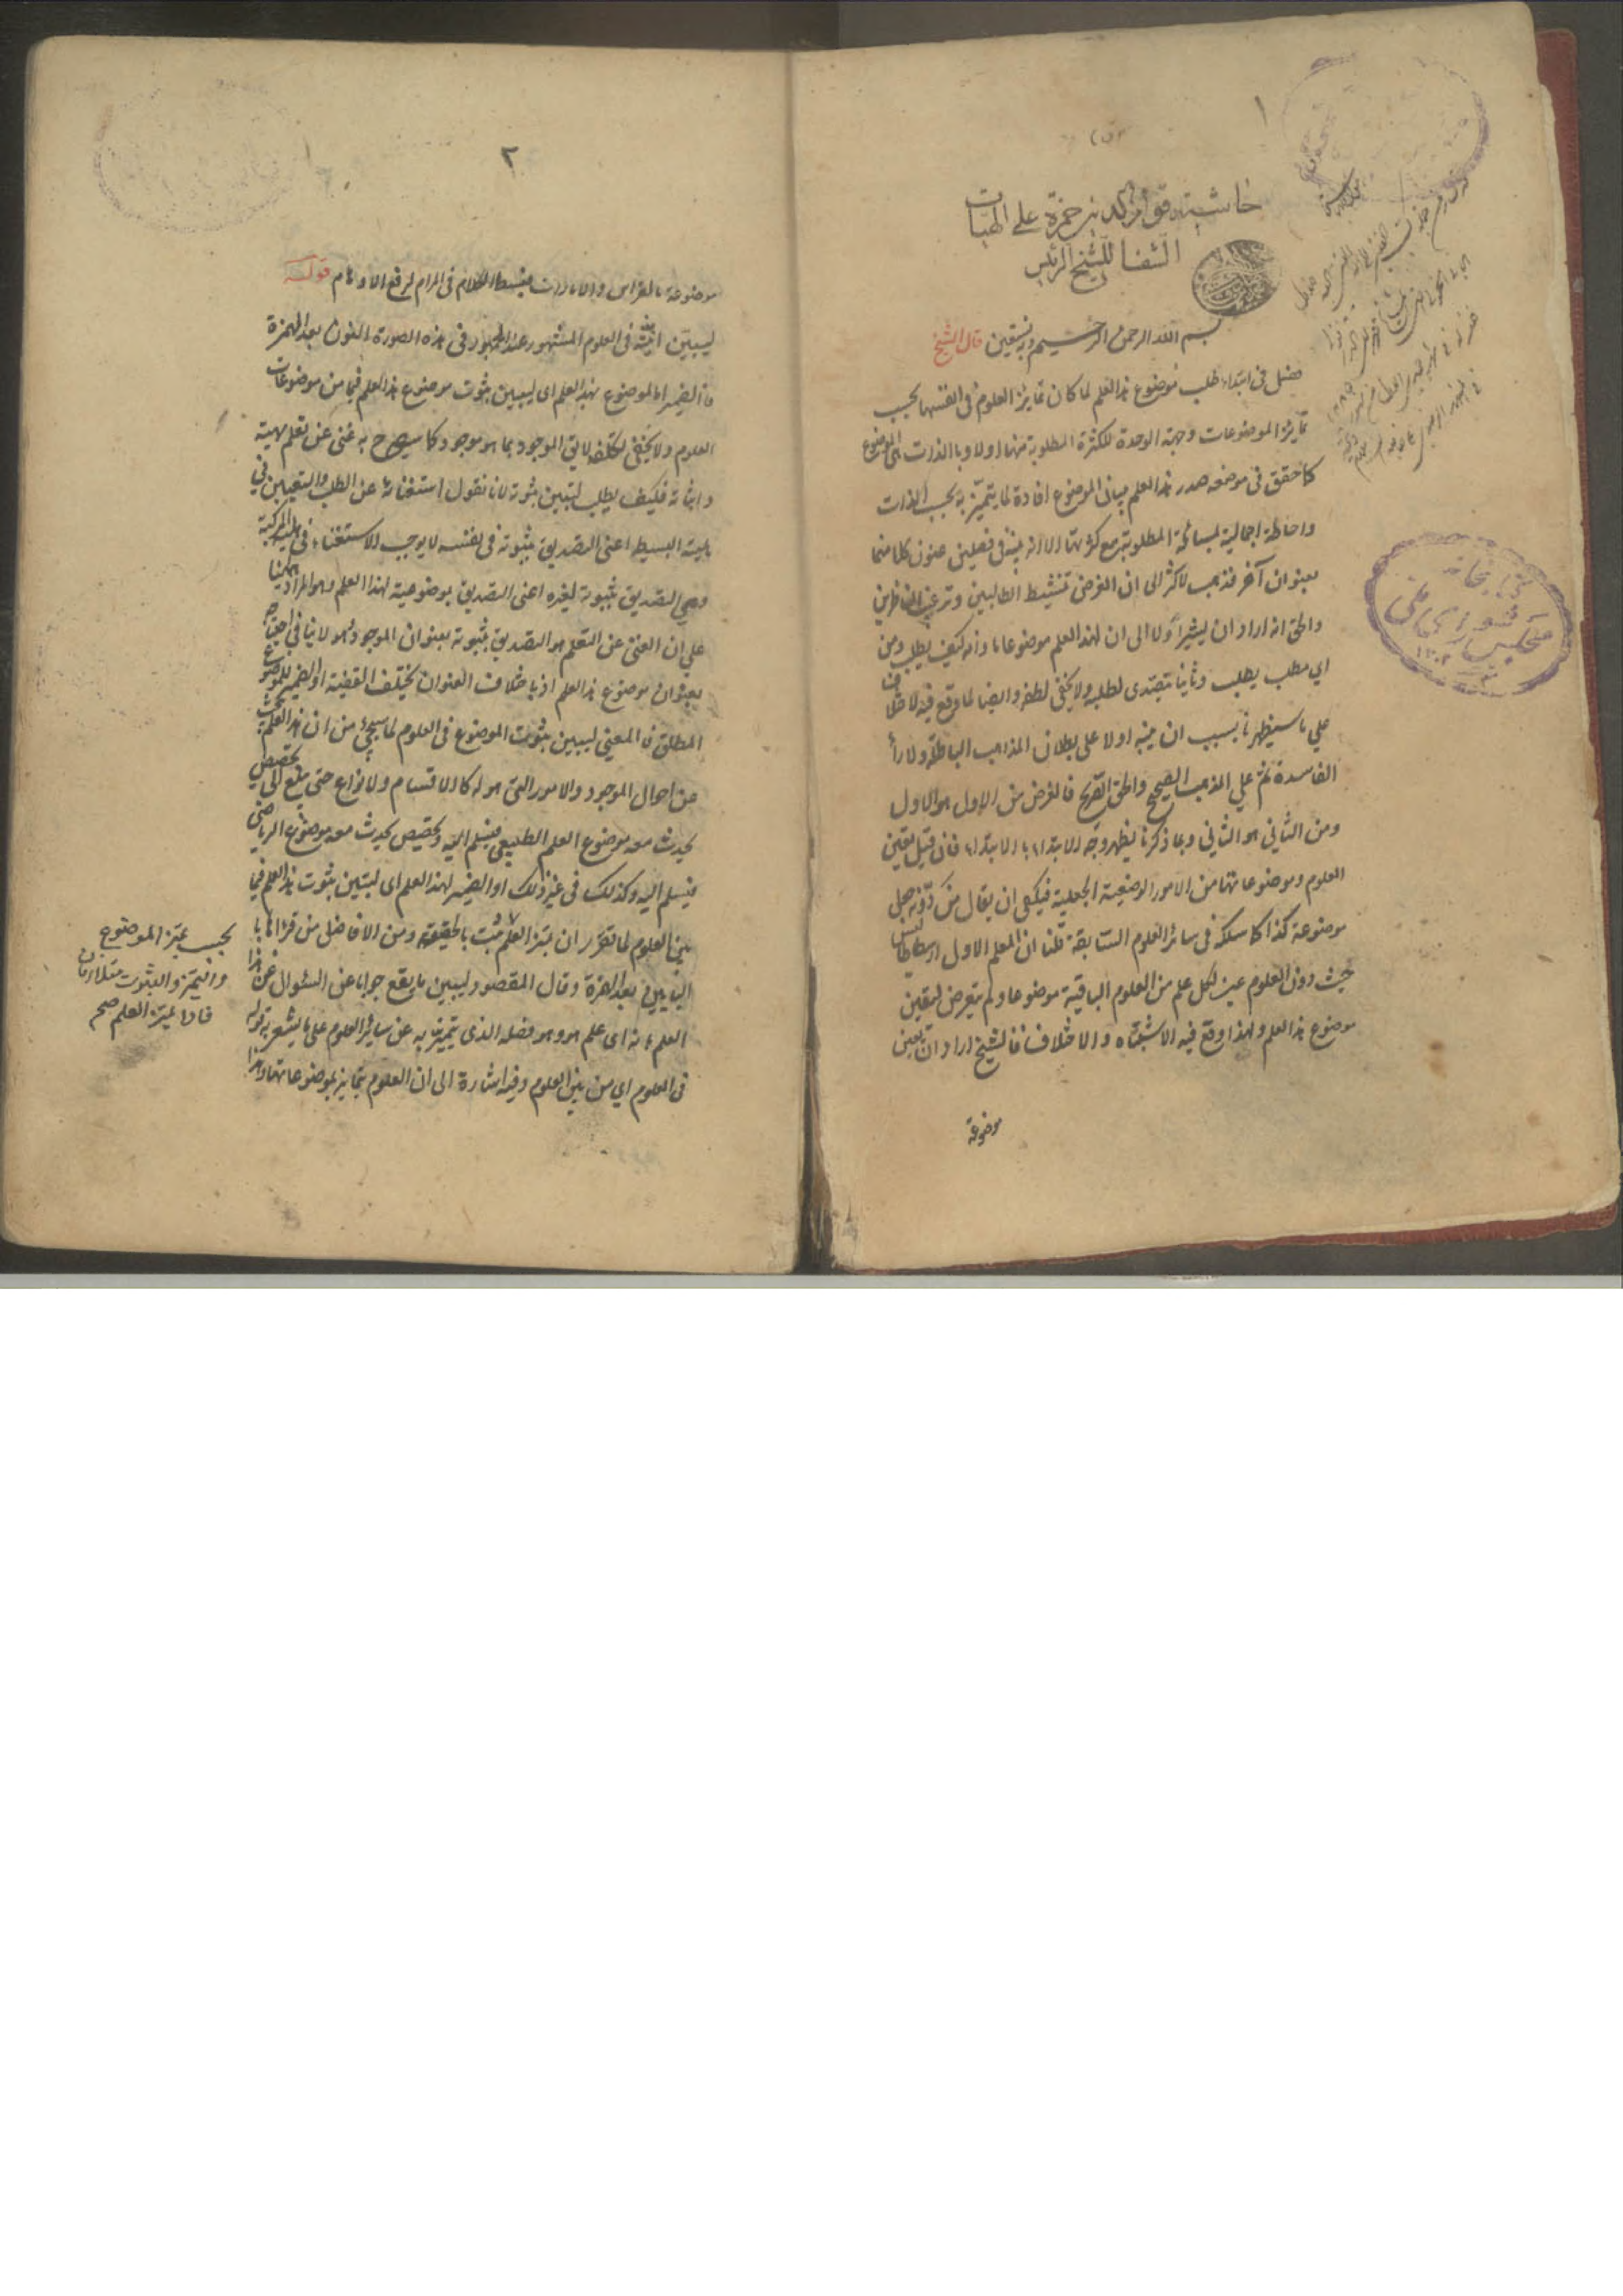 ١
حاشيته قوام الدين حمزة على الهيات
الشفا للشيخ الرئيس
بسم الله الرحمن الرحيم وبه نستعين قال الشيخ
فصل فى ابتداء طلب موضوع هذا العلم لما كان تمايز العلوم فى انفسها بحسب
تمايز الموضوعات وجهة الوحدة للكثرة المطلوبة منها اولا وبالذات الى الموضوع
كما حقق فى موضعه صدر هذا العلم ببيان الموضوع افادة لما يتميز به بحسب الذات
واحاطة اجمالية لمسائله المطلوبة مع كثرتها الا انه بينه فى فصلين عنون كلا منهما
بعنوان آخر فذهب الاكثر الى ان الغرض تنشيط الطالبين وترغيب الناظرين
والحق انه اراد ان يشير اولا الى ان لهذا العلم موضوعا ما وانه كيف يطلب ومن
اي مطلب يطلب وثانيا يتصدى لطلبه ولا يخفى لطفه وايضا لما وقع فيه الاختلاف
على ما سيظهر ناسب ان ينبه اولا على بطلان المذاهب الباطلة والاراء
الفاسدة ثم على المذهب الصحيح والحق الصريح فالغرض من الاول هو الاول
ومن الثاني هو الثاني وبما ذكرنا يظهر وجه الابتداء بالابتداء فان قيل تعيين
العلوم وموضوعاتها من الامور الوضعية الجعلية فيكفى ان يقال من دونه جعل
موضوعه كذا كما سلكه فى سائر العلوم السابقة قلنا ان المعلم الاول ارسطاطاليس
حيث دون العلوم عين لكل علم من العلوم الباقية موضوعا ولم يتعرض لتعيين
موضوع هذا العلم ولهذا وقع فيه الاشتباه والاختلاف فالشيخ اراد ان يعين
موضوعه
كتابخانه
مجلس شوراى ملى
١٣٠٢
٢
موضوعه بالفراس والامارات فبسط الكلام فى المرام لرفع الاوهام قوله
ليتبين انيته فى العلوم المشهور عند الجمهور فى هذه الصورة النون بعد الهمزة
فالضمير اما لموضوع لهذا العلم اى ليتبين ثبوت موضوع هذا العلم فيما من موضوعات
العلوم ولا يخفى تكلفه لا يق الموجود بما هو موجود كما سيصرح به غنى عن تعلم مهيته
واثباته فكيف يطلب ليتبين ثبوته لانا نقول استغنائه عن الطلب والتعيين فى
هليته البسيط اعنى التصديق بثبوته فى نفسه لا يوجب الاستغناء فى هليته المركبة
وهى التصديق بثبوته لغيره اعنى التصديق بموضوعيته لهذا العلم وهو المراد ههنا
على ان الغنى عن التعلم هو التصديق بثبوته بعنوان الموجود وهو لا ينافى احتياجه
بعنوان موضوع هذا العلم اذ باختلاف العنوان يختلف القضية او الضمير للموضوع
المطلق فالمعنى ليتبين ثبوت الموضوع فى العلوم لما سيجئ من ان هذا العلم يبحث
عن احوال الموجود والامور التى هو له كالاقسام والانواع حتى يبلغ الى تخصيص
يحدث معه موضوع العلم الطبيعى فيسلم اليه وتخصيص يحدث معه موضوع الرياضى
فيسلم اليه وكذلك فى غير ذلك او الضمير لهذا العلم اى ليتبين ثبوت هذا العلم فيما
بين العلوم لما تقرر ان تميز العلم يثبت بالحقيقة ومن الافاضل من قرأها با
اليايين بعد الهمزة وقال المقصود ليبين ما يقع جوابا عن السئوال عن هذا
العلم بانه اى علم هو وهو فصله الذى يتميز به عن سائر العلوم على ما يشعر به قوله
فى العلوم اي من بين العلوم وفيه اشارة الى ان العلوم يتمايز بموضوعاتها وهذا
بحسب تميز الموضوع
والتميز والثبوت متلازمان
فاذا تميز العلم صح